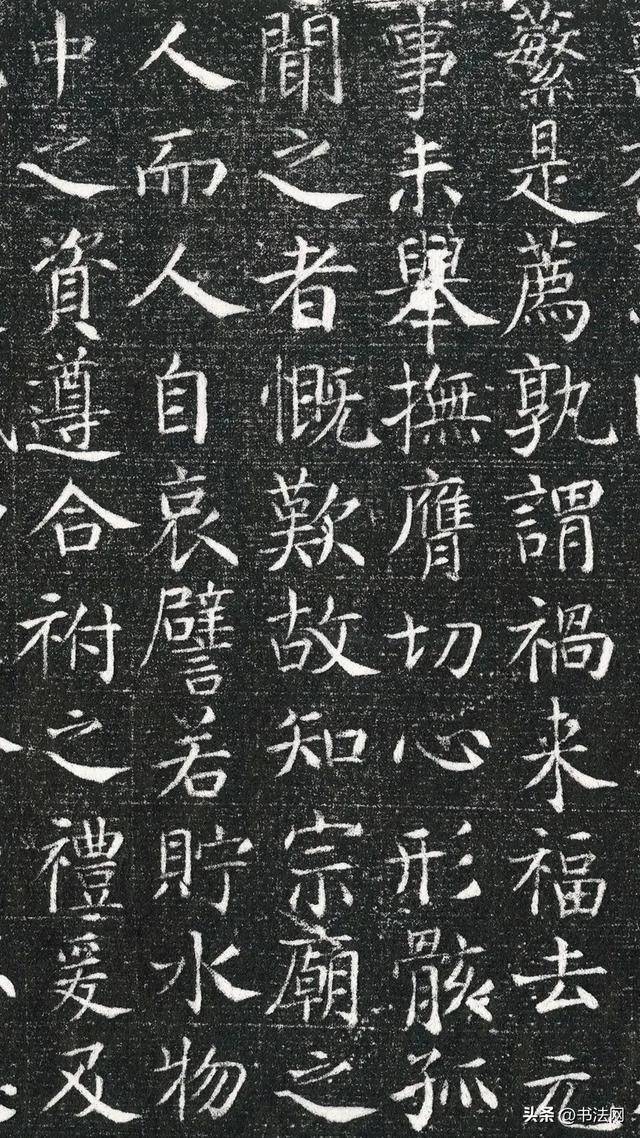 蘩是薦孰謂禍来福去元
事未舉撫膺切心形骸孤
聞之者慨歎故知宗廟之
人而人自哀譬若貯水物
中之資遵合祔之禮爰及
头条 @书法网